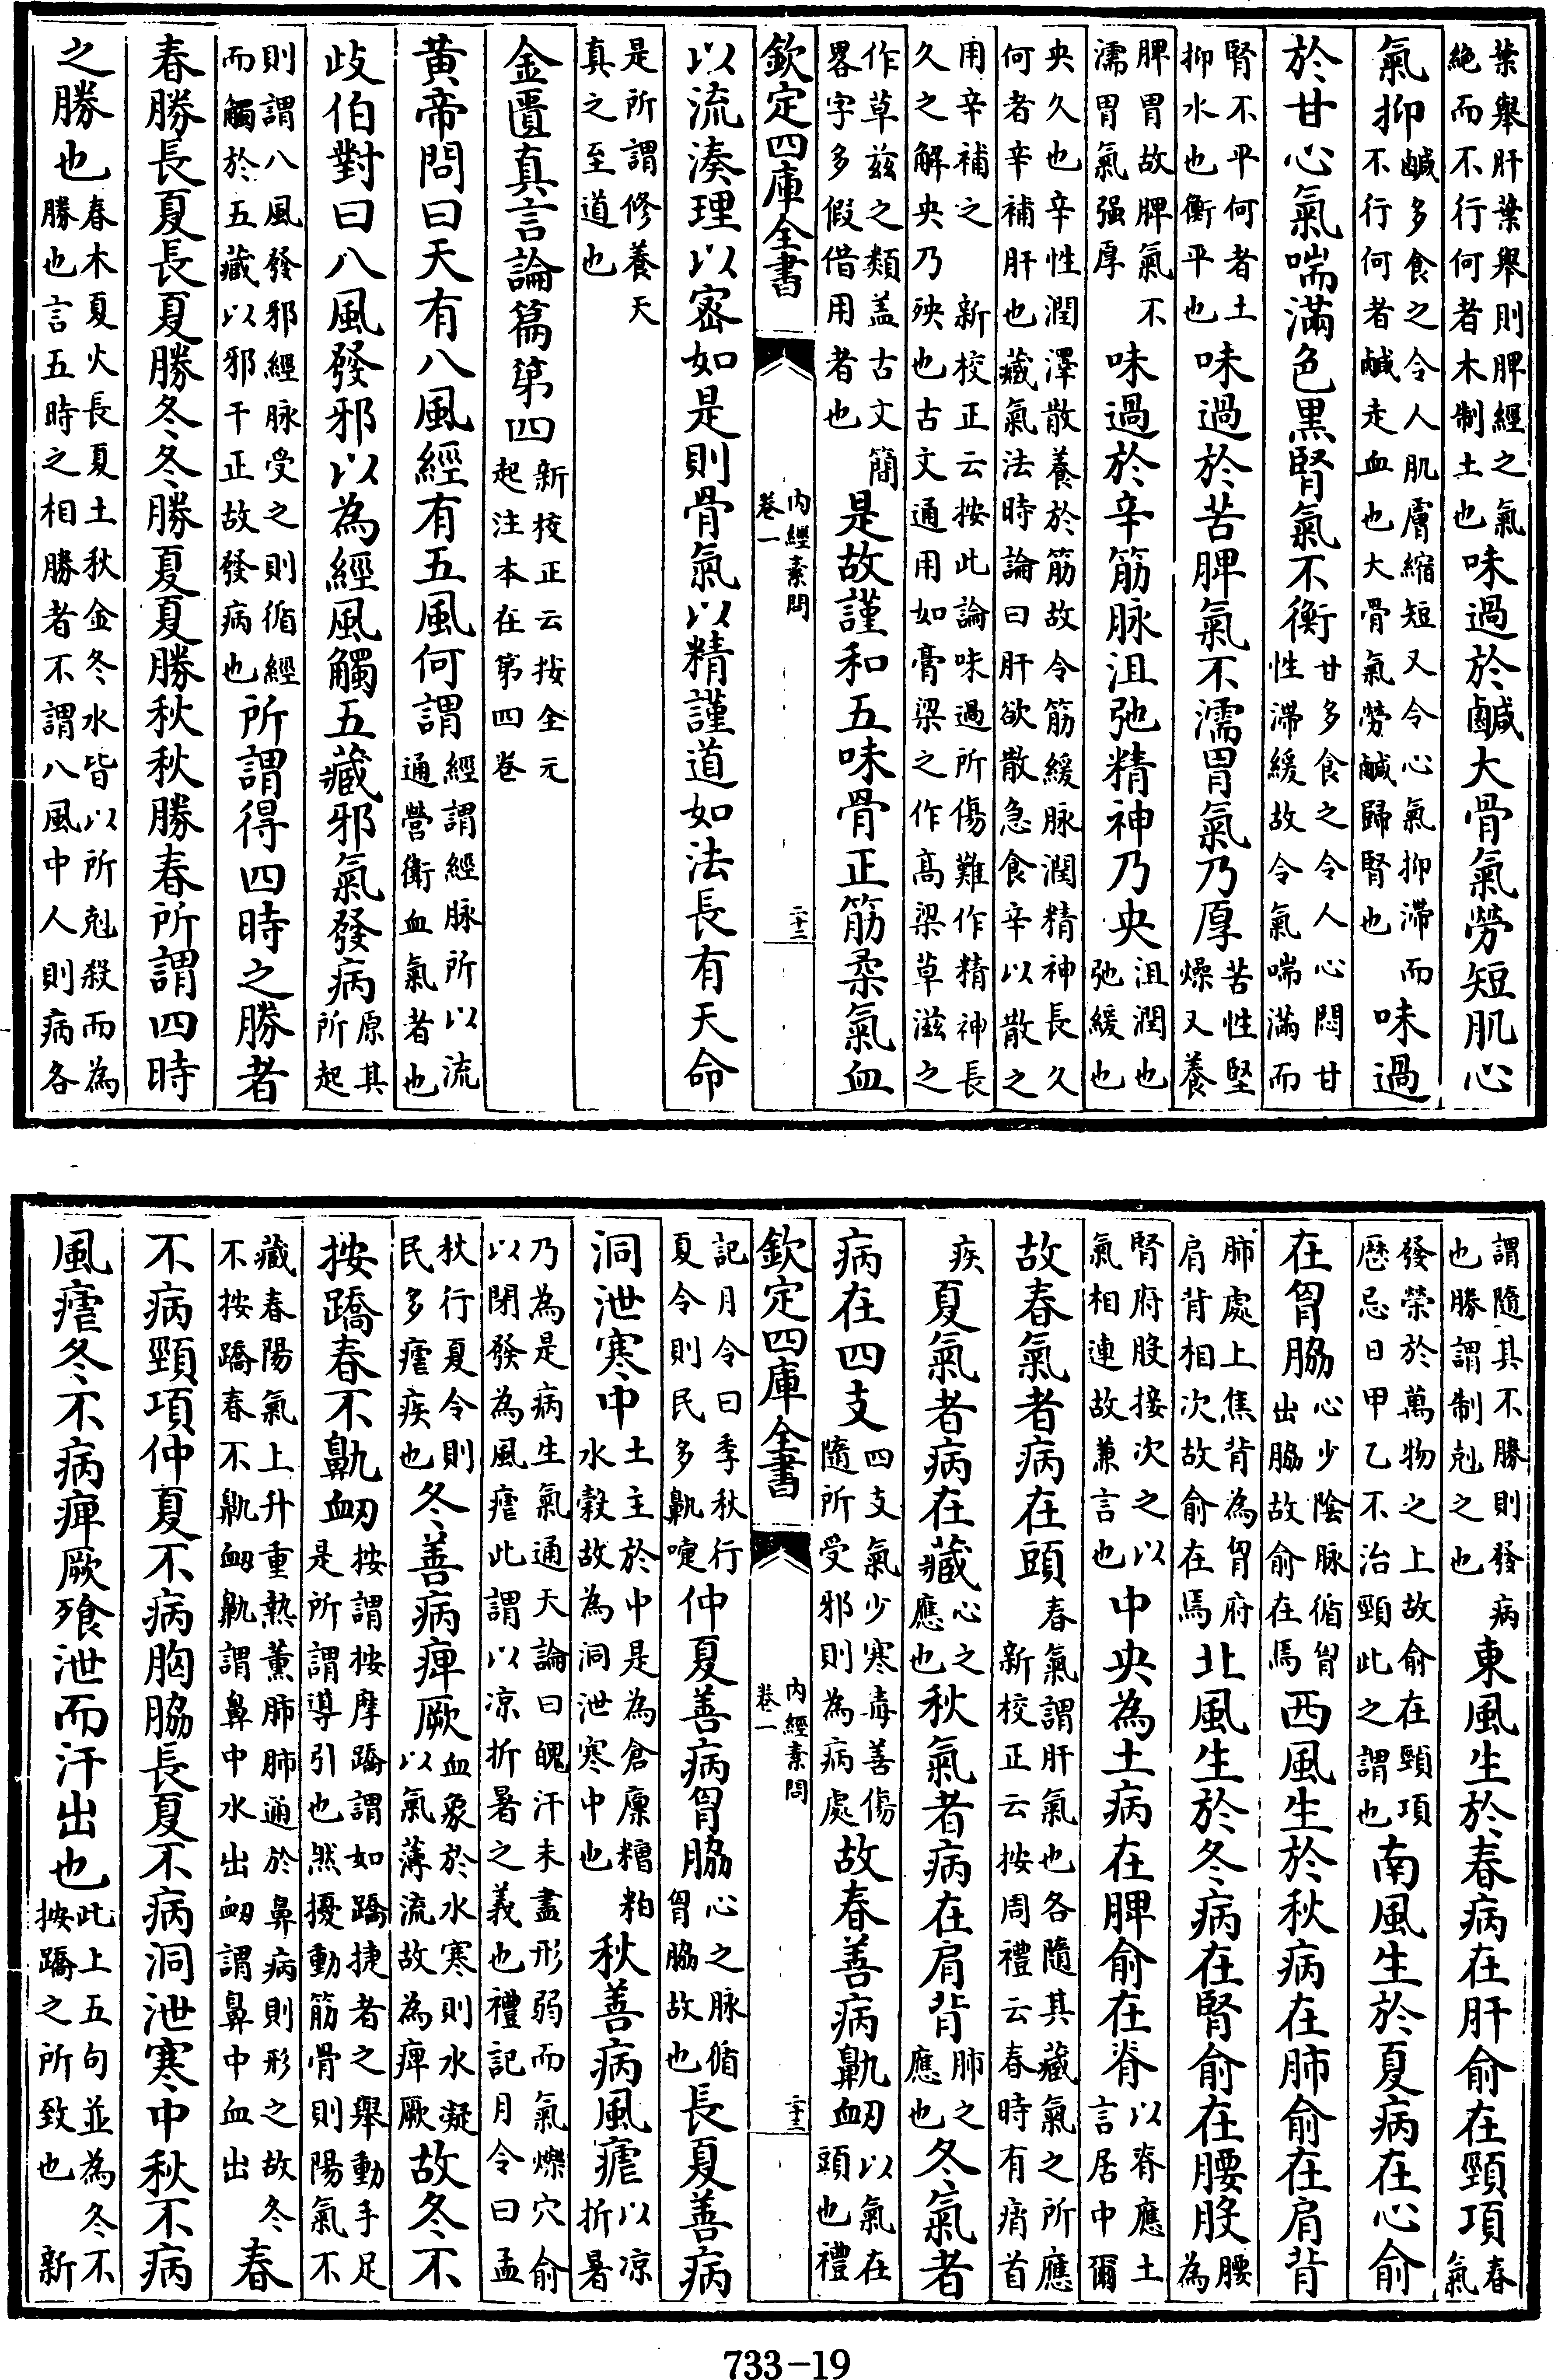 葉舉肝葉舉則脾經之氣絶而不行何者木制土也味過於鹹大骨氣勞短肌心
氣抑鹹多食之令人肌膚縮短又令心氣抑滯而不行何者鹹走血也大骨氣勞鹹歸腎也味過
於甘心氣喘滿色黒腎氣不衡甘多食之令人心悶甘性滯緩故令氣喘滿而
腎不平何者土抑水也衡平也味過於苦脾氣不濡胃氣乃厚苦性堅燥又養
脾胃故脾氣不濡胃氣强厚味過於辛筋脉沮弛精神乃央沮潤也弛緩也
央久也辛性潤澤散養於筋故令筋緩脉潤精神長久何者辛補肝也藏氣法時論曰肝欲散急食辛以散之
用辛補之 新校正云按此論味過所傷難作精神長久之解央乃殃也古文通用如膏梁之作髙梁草滋之
作草兹之類盖古文簡畧字多假借用者也是故謹和五味骨正筋柔氣血
欽定四庫全書 內經素問 卷一 二十二
以流湊理以宻如是則骨氣以精謹道如法長有天命
是所謂修養天真之至道也
金匱真言論篇第四新校正云按全元起注本在第四卷
黄帝問曰天有八風經有五風何謂經謂經脉所以流通營衛血氣者也
歧伯對曰八風發邪以為經風觸五藏邪氣發病原其所起
則謂八風發邪經脉受之則循經而觸於五藏以邪干正故發病也所謂得四時之勝者
春勝長夏長夏勝冬冬勝夏夏勝秋秋勝春所謂四時
之勝也春木夏火長夏土秋金冬水皆以所剋殺而為勝也言五時之相勝者不謂八風中人則病各
謂隨其不勝則發病也勝謂制剋之也東風生於春病在肝俞在頸項春氣
發榮於萬物之上故俞在頸項歴忌日甲乙不治頸此之謂也南風生於夏病在心俞
在胷脇心少陰脉循胷出脇故俞在焉西風生於秋病在肺俞在肩背
肺處上焦背為胷府肩背相次故俞在焉北風生於冬病在腎俞在腰股腰為
腎府股接次之以氣相連故兼言也中央為土病在脾俞在脊以脊應土言居中爾
故春氣者病在頭春氣謂肝氣也各隨其藏氣之所應 新校正云按周禮云春時有痟首
疾夏氣者病在藏心之應也秋氣者病在肩背肺之應也冬氣者
病在四支四支氣少寒毒善傷隨所受邪則為病處故春善病鼽衂以氣在頭也禮
欽定四庫全書 內經素問 卷一 二十三
記月令曰季秋行夏令則民多鼽嚏仲夏善病胷脇心之脉循胷脇故也長夏善病
洞泄寒中土主於中是為倉廩糟粕水穀故為洞泄寒中也秋善病風瘧以凉折暑
乃為是病生氣通天論曰魄汗未盡形弱而氣爍穴俞以閉發為風瘧此謂以凉折暑之義也禮記月令曰孟
秋行夏令則民多瘧疾也冬善病痺厥血象於水寒則水凝以氣薄流故為痺厥故冬不
按蹻春不鼽衂按謂按摩蹻謂如蹻捷者之舉動手足是所謂導引也然擾動筋骨則陽氣不
藏春陽氣上升重熱薰肺肺通於鼻病則形之故冬不按蹻春不鼽衂鼽謂鼻中水出衂謂鼻中血出春
不病頸項仲夏不病胸脇長夏不病洞泄寒中秋不病
風瘧冬不病痺厥飱泄而汗出也此上五句並為冬不按蹻之所致也 新
733-19